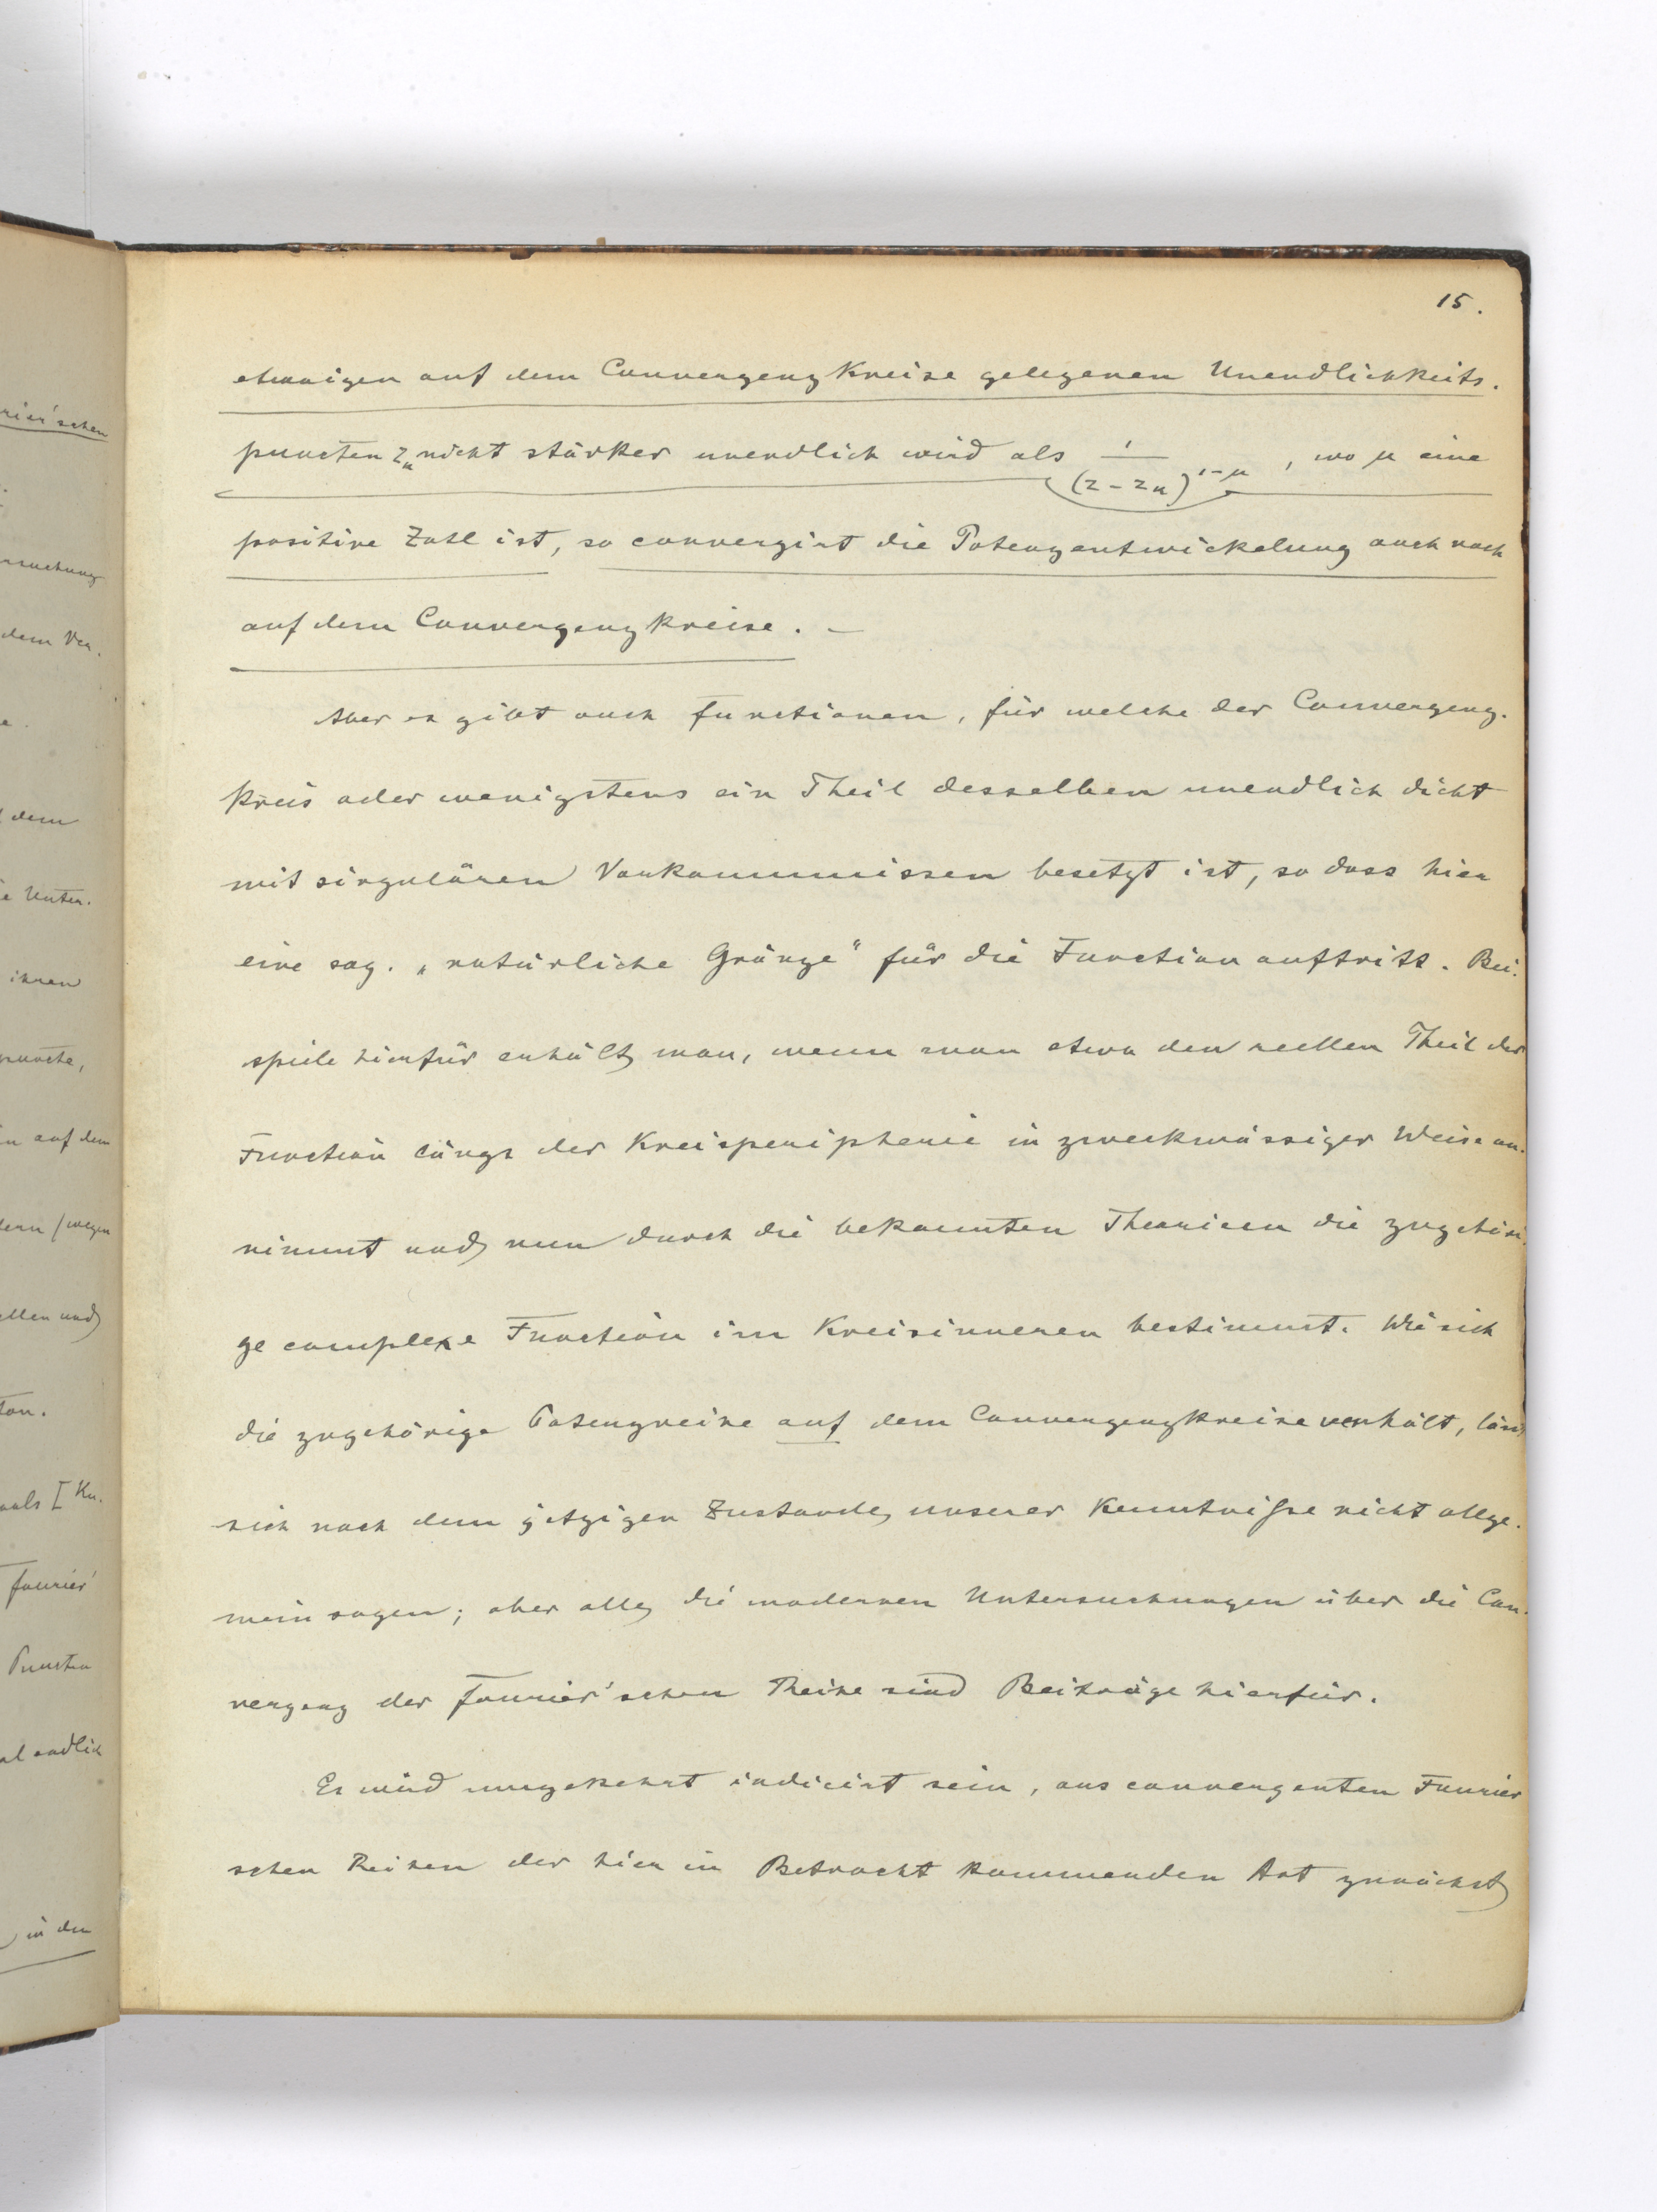 15.
etwaigen auf dem Convergenzkreise gelegenen Unendlichkeits-
puncten zₙ nicht stärker unendlich wird als 1/(z-zₙ)^(1-μ), wo μ eine
positive Zahl ist, so convergirt die Potenzentwickelung auch noch
auf dem Convergenzkreise. —
Aber es gibt auch Functionen, für welche der Convergenz-
kreis oder wenigstens ein Theil desselben unendlich dicht
mit singulären Vorkommnissen besetzt ist, so dass hier
eine sog. „natürliche Gränze“ für die Function auftritt. Bei-
spiele hierfür erhält man, wenn man etwa den reellen Theil der
Function längs der Kreisperipherie in zweckmässiger Weise an-
nimmt und nun durch die bekannten Theorieen die zugehöri-
ge complexe Function im Kreisinneren bestimmt. Wie sich
die zugehörige Potenzreihe auf dem Convergenzkreise verhält, lässt
sich nach dem jetzigen Zustande unserer Kenntnisse nicht allge-
mein sagen; aber alle die modernen Untersuchungen über die Con-
vergenz der Fourier'schen Reihe sind Beiträge hierfür.
Es wird umgekehrt indicirt sein, aus convergenten Fourier
schen Reihen der hier in Betracht kommenden Art zunächst
rier'schen
rsuchung
dem Ver-
dem
e Unter-
ihren
puncte,
auf dem
(wegen
ellen und
Fourier'
Puncten
endlich
in den